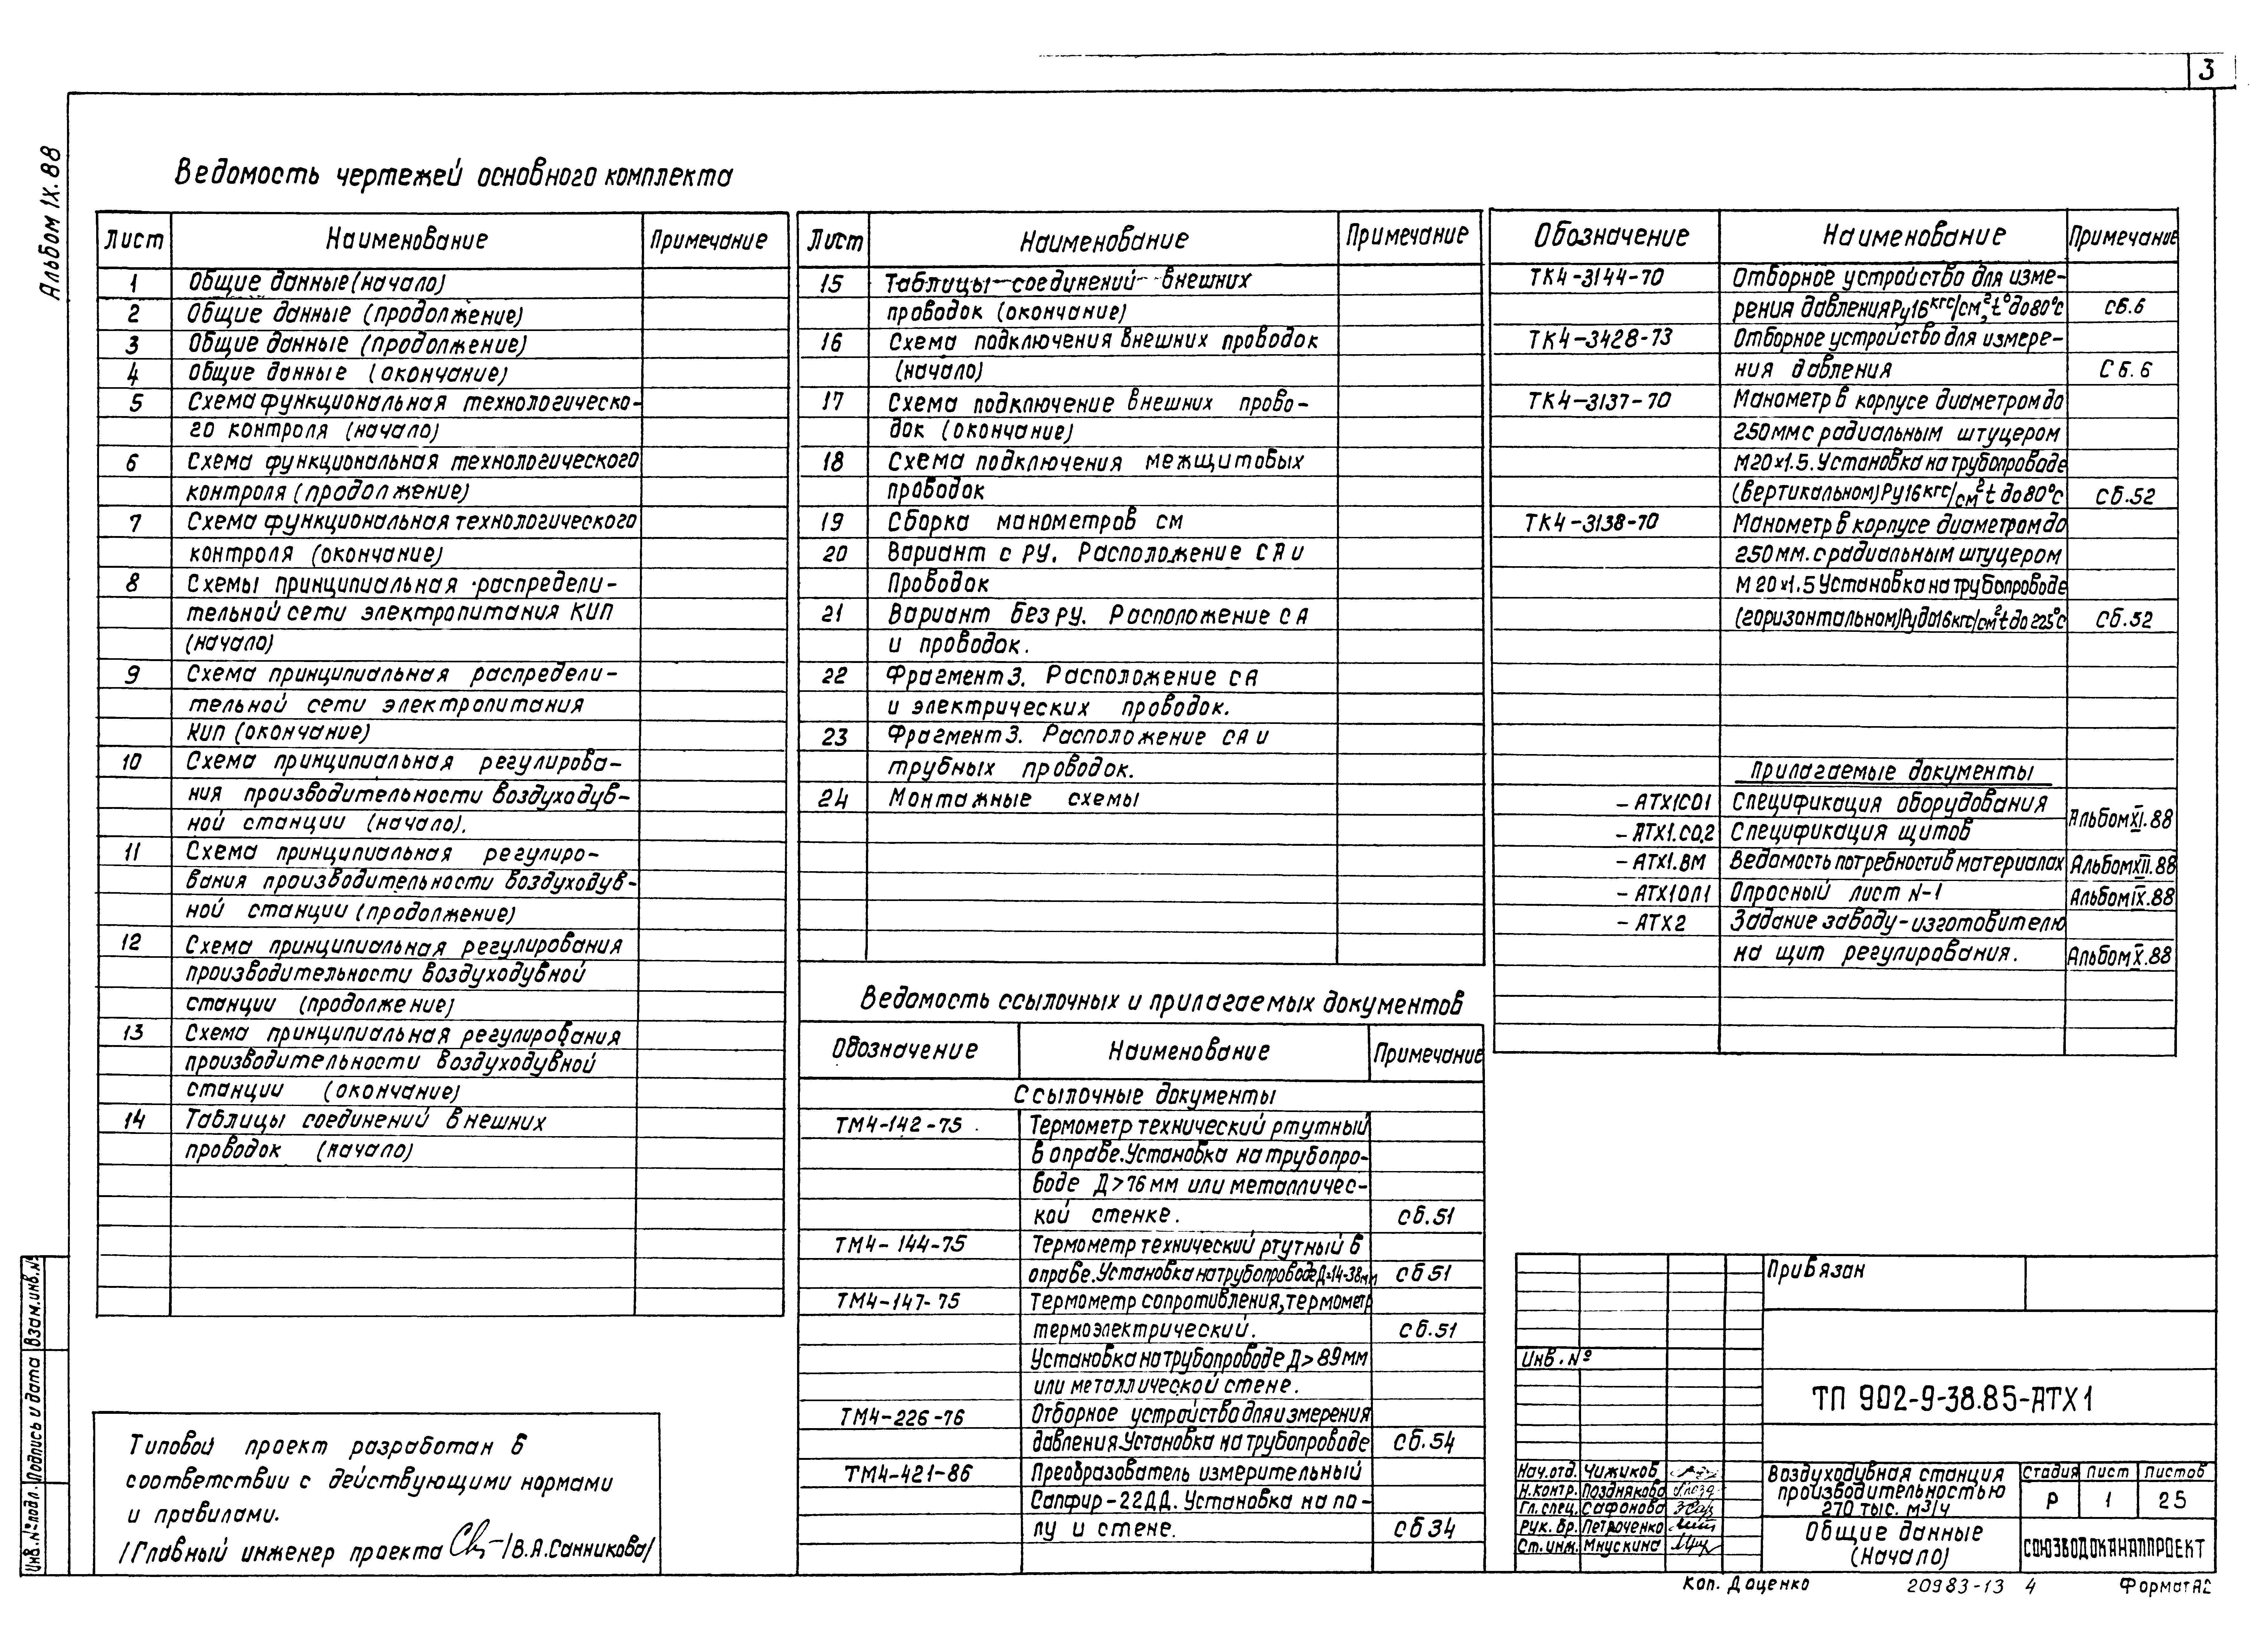 3
Альбом IX. 88
Ведомость чертежей основного комплекта
Лист Наименование Примечание
1 Общие данные (начало)
2 Общие данные (продолжение)
3 Общие данные (продолжение)
4 Общие данные (окончание)
5 Схема функциональная технологическо-
го контроля (начало)
6 Схема функциональная технологического
контроля (продолжение)
7 Схема функциональная технологического
контроля (окончание)
8 Схемы принципиальная распредели-
тельной сети электропитания КИП
(начало)
9 Схема принципиальная распредели-
тельной сети электропитания
КИП (окончание)
10 Схема принципиальная регулирова-
ния производительности воздуходув-
ной станции (начало).
11 Схема принципиальная регулиро-
вания производительности воздуходув-
ной станции (продолжение)
12 Схема принципиальная регулирования
производительности воздуходувной
станции (продолжение)
13 Схема принципиальная регулирования
производительности воздуходувной
станции (окончание)
14 Таблицы соединений внешних
проводок (начало)
Лист Наименование Примечание
15 Таблицы соединений внешних
проводок (окончание)
16 Схема подключения внешних проводок
(начало)
17 Схема подключение внешних прово-
док (окончание)
18 Схема подключения межщитовых
проводок
19 Сборка манометров см
20 Вариант с РУ. Расположение СА и
Проводок
21 Вариант без РУ. Расположение СА
и проводок.
22 Фрагмент 3. Расположение СА
и электрических проводок.
23 Фрагмент 3. Расположение СА и
трубных проводок.
24 Монтажные схемы
Ведомость ссылочных и прилагаемых документов
Обозначение Наименование Примечание
Ссылочные документы
ТМ4-142-75 Термометр технический ртутный
в оправе. Установка на трубопро-
воде Д>76 мм или металличес-
кой стенке. сб.51
ТМ4-144-75 Термометр технический ртутный в
оправе. Установка на трубопроводе Д=14-38мм сб 51
ТМ4-147-75 Термометр сопротивления, термометр
термоэлектрический. сб.51
Установка на трубопроводе Д>89мм
или металлической стене.
ТМ4-226-76 Отборное устройство для измерения
давления Установка на трубопроводе сб.54
ТМ4-421-86 Преобразователь измерительный
Сапфир-22ДД. Установка на по-
лу и стене. сб 34
Обозначение Наименование Примечание
ТК4-3144-70 Отборное устройство для изме-
рения давления Ру16 кгс/см², t° до 80°с сб.6
ТК4-3428-73 Отборное устройство для измере-
ния давления Сб.6
ТК4-3137-70 Манометр в корпусе диаметром до
250мм с радиальным штуцером
М20×1.5. Установка на трубопроводе
(вертикальном) Ру16 кгс/см² t до 80°с Сб.52
ТК4-3138-70 Манометр в корпусе диаметром до
250мм. с радиальным штуцером
М20×1.5 Установка на трубопроводе
(горизонтальном) Ру до 16 кгс/см² t до 225°с Сб.52
Прилагаемые документы
- АТХ1СО1 Спецификация оборудования Альбом XI.88
- АТХ1.СО.2 Спецификация щитов
- АТХ1.ВМ Ведомость потребности в материалах Альбом XII.88
- АТХ1ОЛ1 Опросный лист N-1 Альбом IX.88
- АТХ2 Задание заводу-изготовителю
на щит регулирования. Альбом X.88
Типовой проект разработан в
соответствии с действующими нормами
и правилами.
/Главный инженер проекта /В.А.Санникова/
Инв.№подл. Подпись и дата Взам.инв.№
Привязан
Инв.№
ТП 902-9-38.85-АТХ1
Нач.отд. Чижиков
Н.контр. Позднякова
Гл.спец. Сафонова
Рук.бр. Петроченко
Ст.инж. Мнускина
Воздуходувная станция
производительностью
270 тыс. м3/ч
Стадия Лист Листов
Р 1 25
Общие данные
(Начало)
СОЮЗВОДОКАНАЛПРОЕКТ
Коп. Даценко 20983-13 4 Формат А2